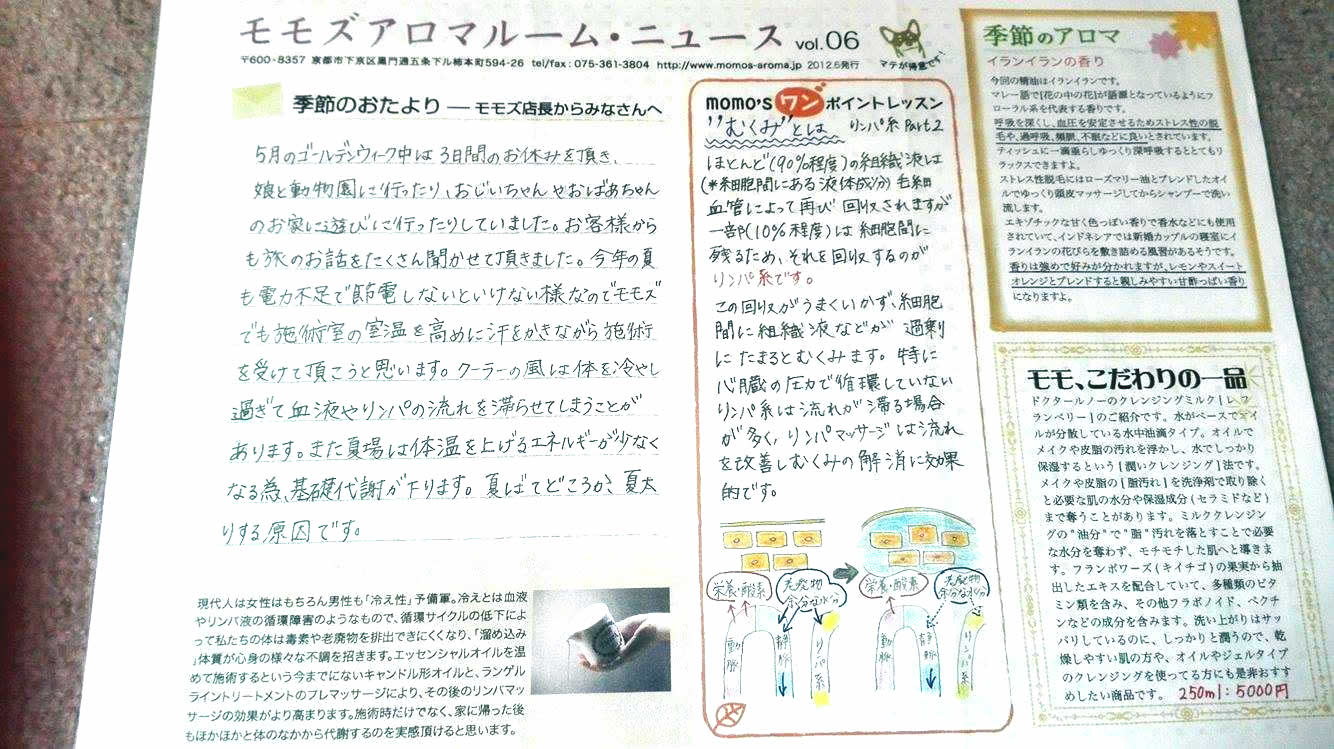 モモズアロマルーム・ニュース vol.06
マテが得意です
〒600-8357 京都市下京区黒門通五条下ル柿本町594-26 tel/fax:075-361-3804 http://www.momos-aroma.jp 2012.6発行
季節のおたより ― モモズ店長からみなさんへ
5月のゴールデンウィーク中は3日間のお休みを頂き、
娘と動物園に行ったり、おじいちゃんやおばあちゃん
のお家に遊びに行ったりしていました。お客様から
も旅のお話をたくさん聞かせて頂きました。今年の夏
も電力不足で節電しないといけない様なのでモモズ
でも施術室の室温を高めに汗をかきながら施術
を受けて頂こうと思います。クーラーの風は体を冷やし
過ぎて血液やリンパの流れを滞らせてしまうことが
あります。また夏場は体温を上げるエネルギーが少なく
なる為、基礎代謝が下ります。夏ばてどころか、夏太
りする原因です。
現代人は女性はもちろん男性も「冷え性」予備軍。冷えとは血液
やリンパ液の循環障害のようなもので、循環サイクルの低下によ
って私たちの体は毒素や老廃物を排出できにくくなり、「溜め込み
」体質が心身の様々な不調を招きます。エッセンシャルオイルを温
めて施術するという今までにないキャンドル形オイルと、ランゲル
ライントリートメントのプレマッサージにより、その後のリンパマッ
サージの効果がより高まります。施術時だけでなく、家に帰った後
もほかほかと体のなかから代謝するのを実感頂けると思います。
momo's ワン ポイントレッスン
"むくみ"とは リンパ系 Part2
ほとんど(90%程度)の組織液は
(*細胞間にある液体成分) 毛細
血管によって再び回収されますが
一部(10%程度)は細胞間に
残るため、それを回収するのが
リンパ系です。
この回収がうまくいかず、細胞
間に組織液などが過剰
にたまるとむくみます。特に
心臓の圧力で循環していない
リンパ系は流れが滞る場合
が多く、リンパマッサージは流れ
を改善しむくみの解消に効果
的です。
栄養・酸素 老廃物 余分な水分 栄養・酸素 老廃物 余分な水分
動脈 静脈 リンパ系 動脈 静脈 リンパ系
季節のアロマ
イランイランの香り
今回の精油はイランイランです。
マレー語で「花の中の花」が語源となっているようにフ
ローラル系を代表する香りです。
呼吸を深くし、血圧を安定させるためストレス性の脱
毛や、過呼吸、頻脈、不眠などに良いとされています。
ティッシュに一滴垂らしゆっくり深呼吸するととてもリ
ラックスできますよ。
ストレス性脱毛にはローズマリー油とブレンドしたオイ
ルでゆっくり頭皮マッサージしてからシャンプーで洗い
流します。
エキゾチックな甘く色っぽい香りで香水などにも使用
されていて、インドネシアでは新婚カップルの寝室にイ
ランイランの花びらを敷き詰める風習があるそうです。
香りは強めで好みが分かれますが、レモンやスイート
オレンジとブレンドすると親しみやすい甘酸っぱい香り
になりますよ。
モモ、こだわりの一品
ドクタールノーのクレンジングミルク「レ フ
ランベリー」のご紹介です。水がベースでオイ
ルが分散している水中油滴タイプ。オイルで
メイクや皮脂の汚れを浮かし、水でしっかり
保湿するという「潤いクレンジング」法です。
メイクや皮脂の「脂汚れ」を洗浄剤で取り除く
と必要な肌の水分や保湿成分(セラミドなど)
まで奪うことがあります。ミルククレンジン
グの"油分"で"脂"汚れを落とすことで必要
な水分を奪わず、モチモチした肌へと導きま
す。フランボワーズ(キイチゴ)の果実から抽
出したエキスを配合していて、多種類のビタ
ミン類を含み、その他フラボノイド、ペクチ
ンなどの成分を含みます。洗い上がりはサッ
パリしているのに、しっかりと潤うので、乾
燥しやすい肌の方や、オイルやジェルタイプ
のクレンジングを使ってる方にも是非おすす
めしたい商品です。 250ml:5000円